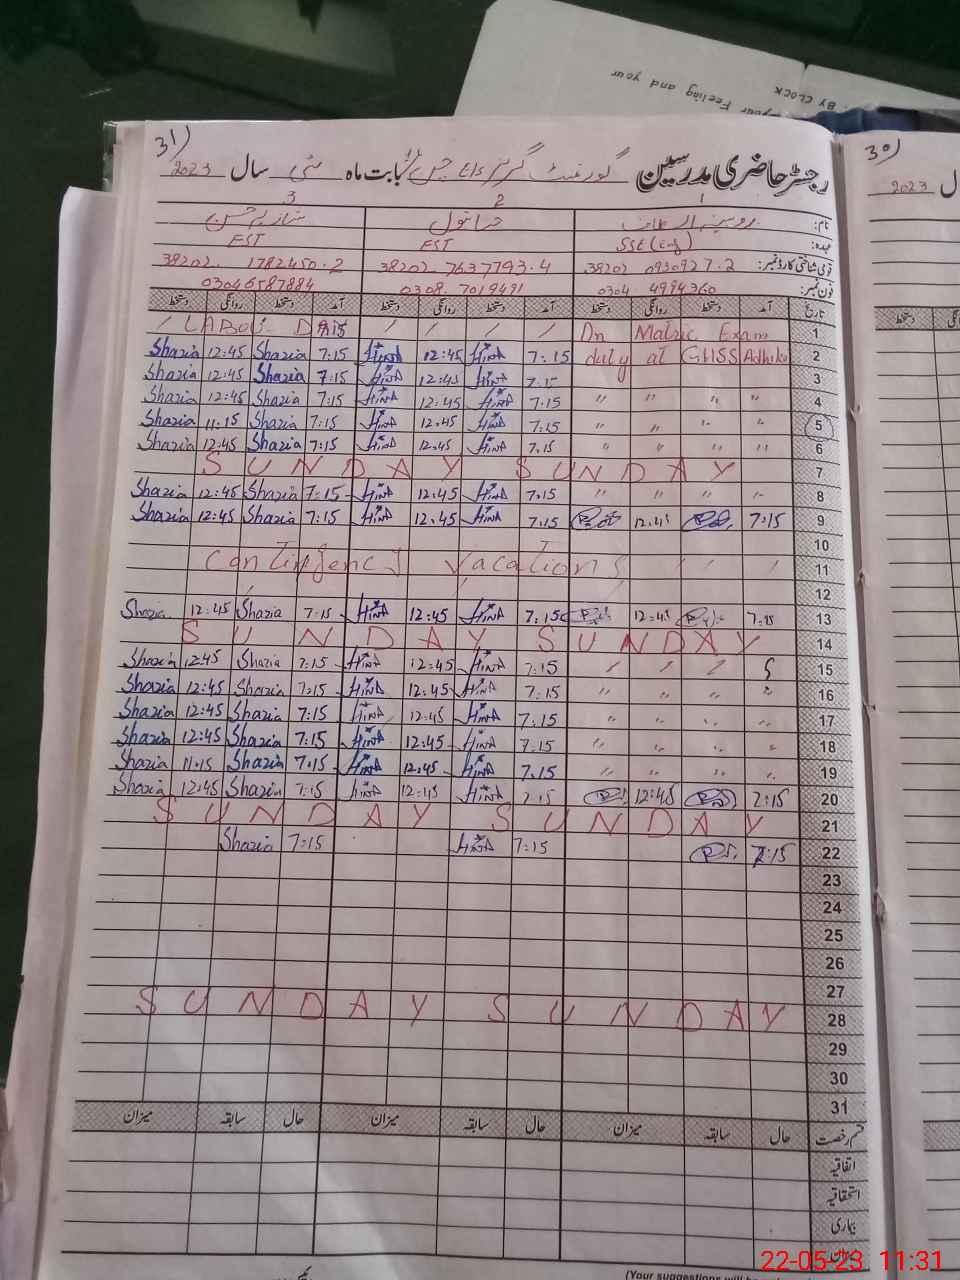 your Feeling and your
BY CLOCK
31)
30)
رجسٹر حاضری مدرسین گورنمنٹ گرلز بابت ماہ مئی سال 2023
2023
1 2 3
نام:
عہدہ: SSE (Eng) EST EST
قومی شناختی کارڈ نمبر: 38202 0930927.2 38202-7637793.4 38202. 1782450.2
فون نمبر: 0304 4994360 0308.7019491 03046587884
تاریخ آمد دستخط روانگی دستخط آمد دستخط روانگی دستخط آمد دستخط روانگی دستخط
1 On Matric Exam / / / / LABOUR DAY
2 duty at GHSS Adhikot 7:15 Hina 12:45 Hina 7:15 Shazia 12:45 Shazia
3 7.15 Hina 12:45 Hina 7:15 Shazia 12:45 Shazia
4 " " " " 7.15 Hina 12:45 Hina 7:15 Shazia 12:45 Shazia
5 " " " " 7:15 Hina 12.45 Hina 7:15 Shazia 11.15 Shazia
6 " " " " 7.15 Hina 12.45 Hina 7:15 Shazia 12:45 Shazia
7 SUNDAY SUNDAY
8 " " " " 7.15 Hina 12.45 Hina 7:15 Shazia 12:45 Shazia
9 7:15 12.45 7.15 Hina 12.45 Hina 7:15 Shazia 12:45 Shazia
10
11 Contingency Vacations
12
13 7:15 12:45 7.15 Hina 12:45 Hina 7:15 Shazia 12:45 Shazia
14 SUNDAY SUNDAY
15 7:15 Hina 12:45 Hina 7:15 Shazia 12:45 Shazia
16 " " " " 7:15 Hina 12:45 Hina 7:15 Shazia 12:45 Shazia
17 " " " " 7:15 Hina 12:45 Hina 7:15 Shazia 12:45 Shazia
18 " " " " 7:15 Hina 12:45 Hina 7:15 Shazia 12:45 Shazia
19 " " " " 7.15 Hina 12.45 Hina 7.15 Shazia 11.15 Shazia
20 7:15 12:45 7:15 Hina 12:45 Hina 7:15 Shazia 12:45 Shazia
21 SUNDAY SUNDAY
22 7:15 7:15 Hina 7:15 Shazia
23
24
25
26
27
28 SUNDAY SUNDAY
29
30
31
قسم رخصت حال سابقہ میزان حال سابقہ میزان حال سابقہ میزان
اتفاقیہ
استحقاقیہ
بیماری
میزان
(Your suggestions will be
22-05-23 11:31